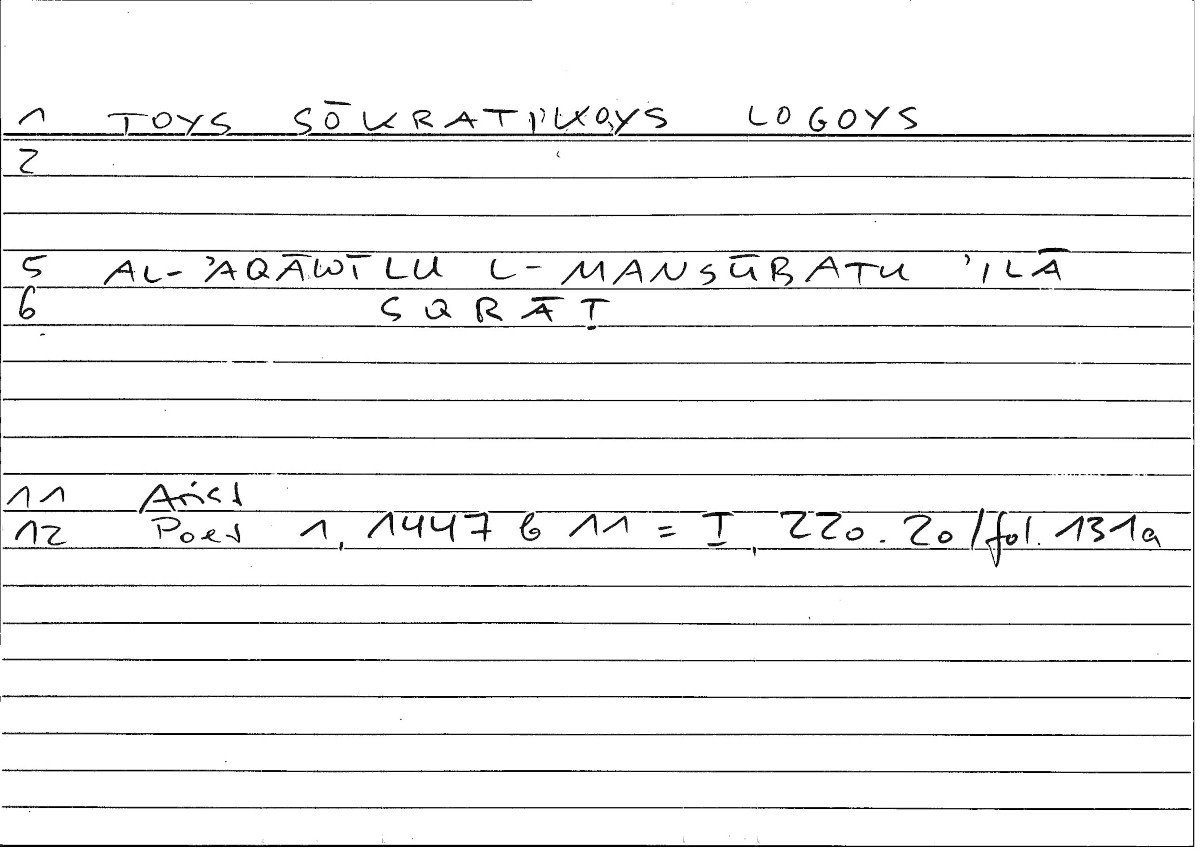 1 TOYS SŌKRATIKOYS LOGOYS
2
5 AL-ʾAQĀWĪLU L-MANSŪBATU ʾILĀ
6 SQRĀṬ
11 Arist
12 Poet 1, 1447 b 11 = I, 220.20/fol. 131a